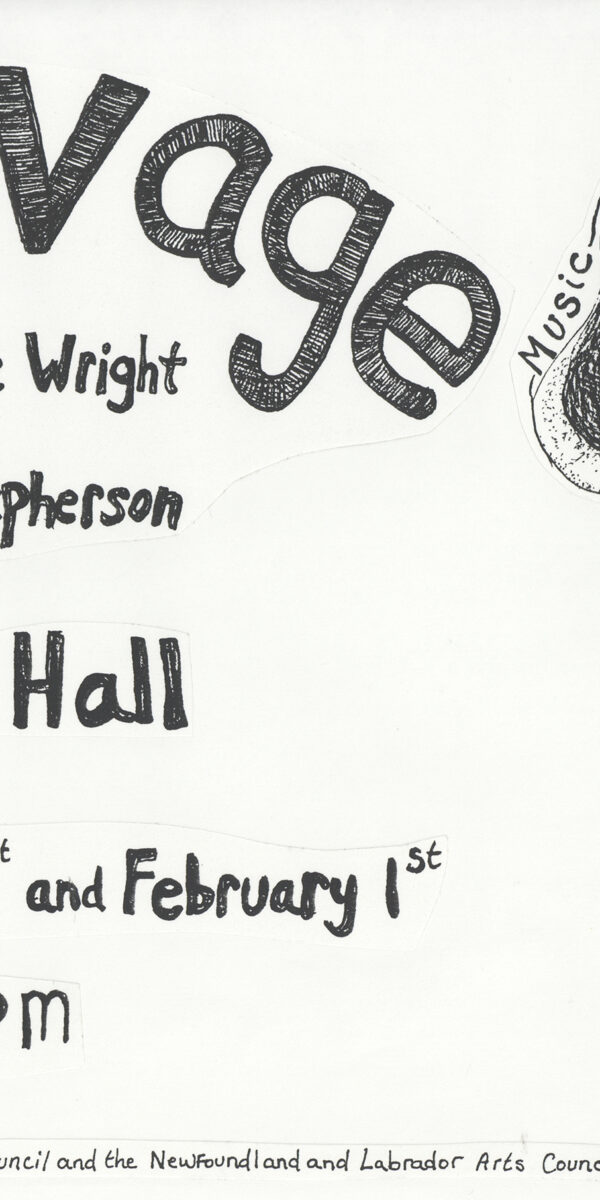 vage
Music
Wright
pherson
Hall
st and February 1st
pm
uncil and the Newfoundland and Labrador Arts Counc